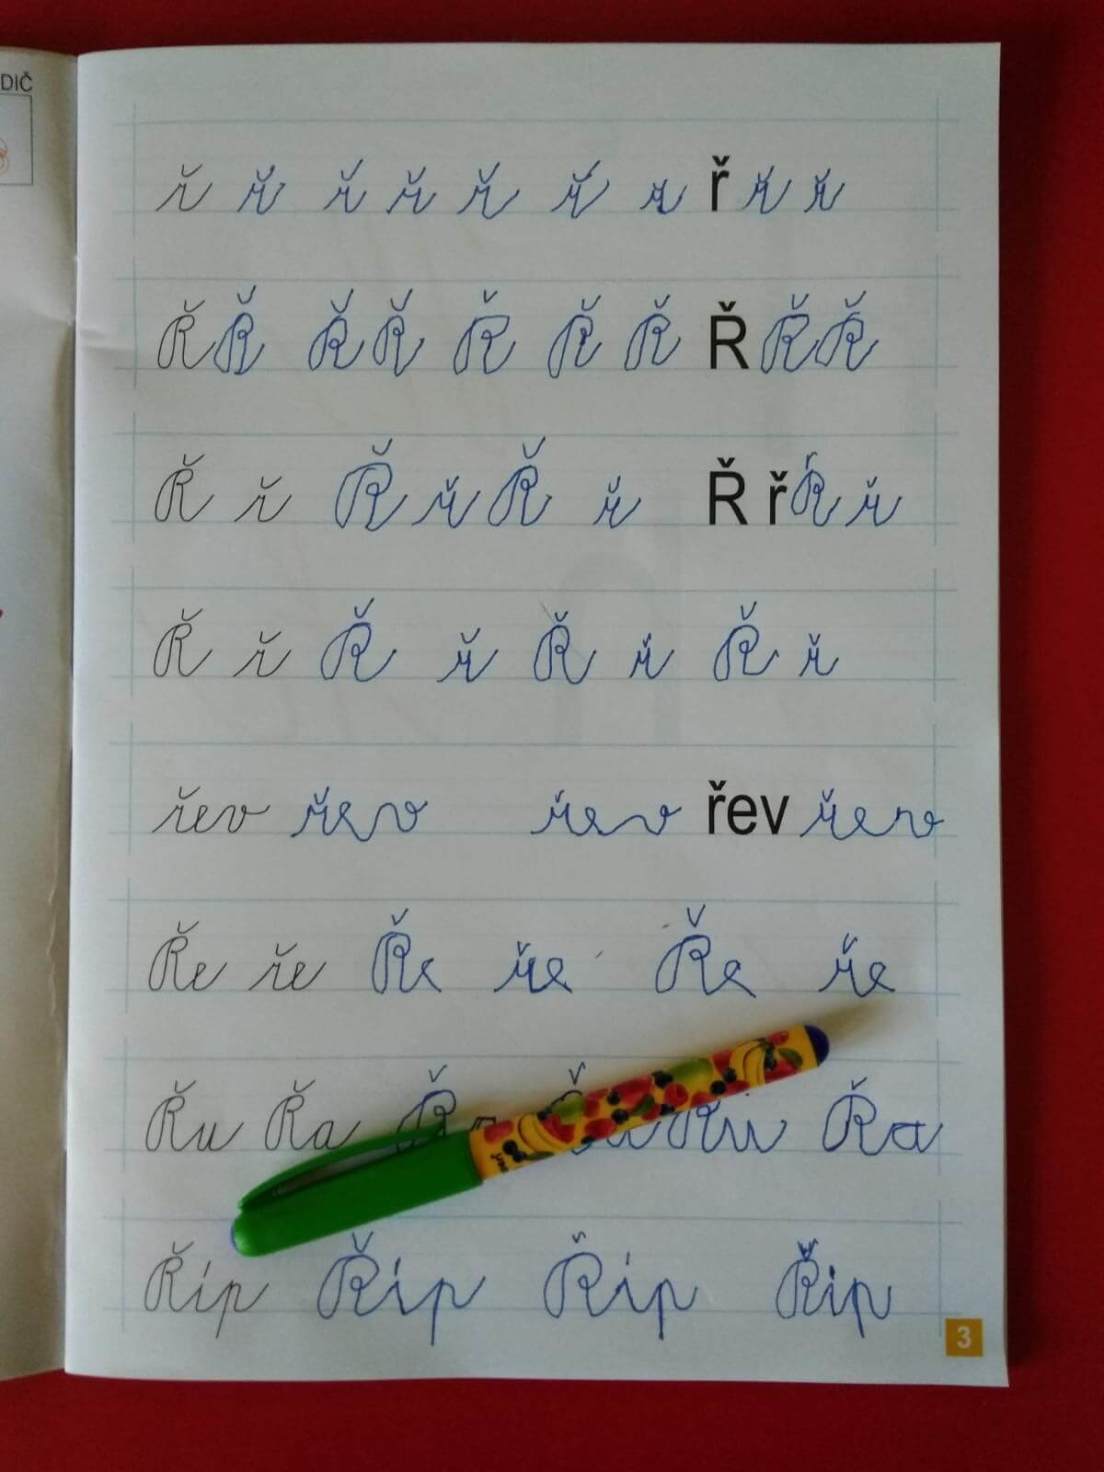 DIČ
ř ř ř ř ř ř ř ř ř ř
Ř Ř Ř Ř Ř Ř Ř Ř Ř Ř
Ř ř Ř ř Ř ř Ř ř Ř ř
Ř ř Ř ř Ř ř Ř ř
řev řev řev řev řev
Ře ře Ře ře Ře ře
Řu Řa Řu Řa
Říp Říp Říp Řip
3